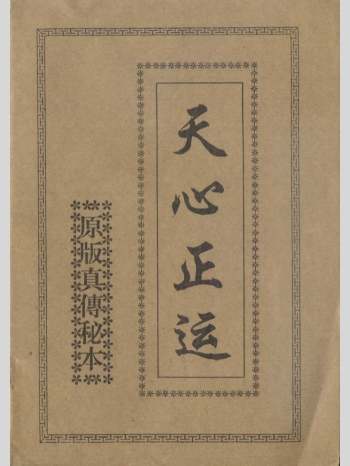 天心正运
原版真傳秘本